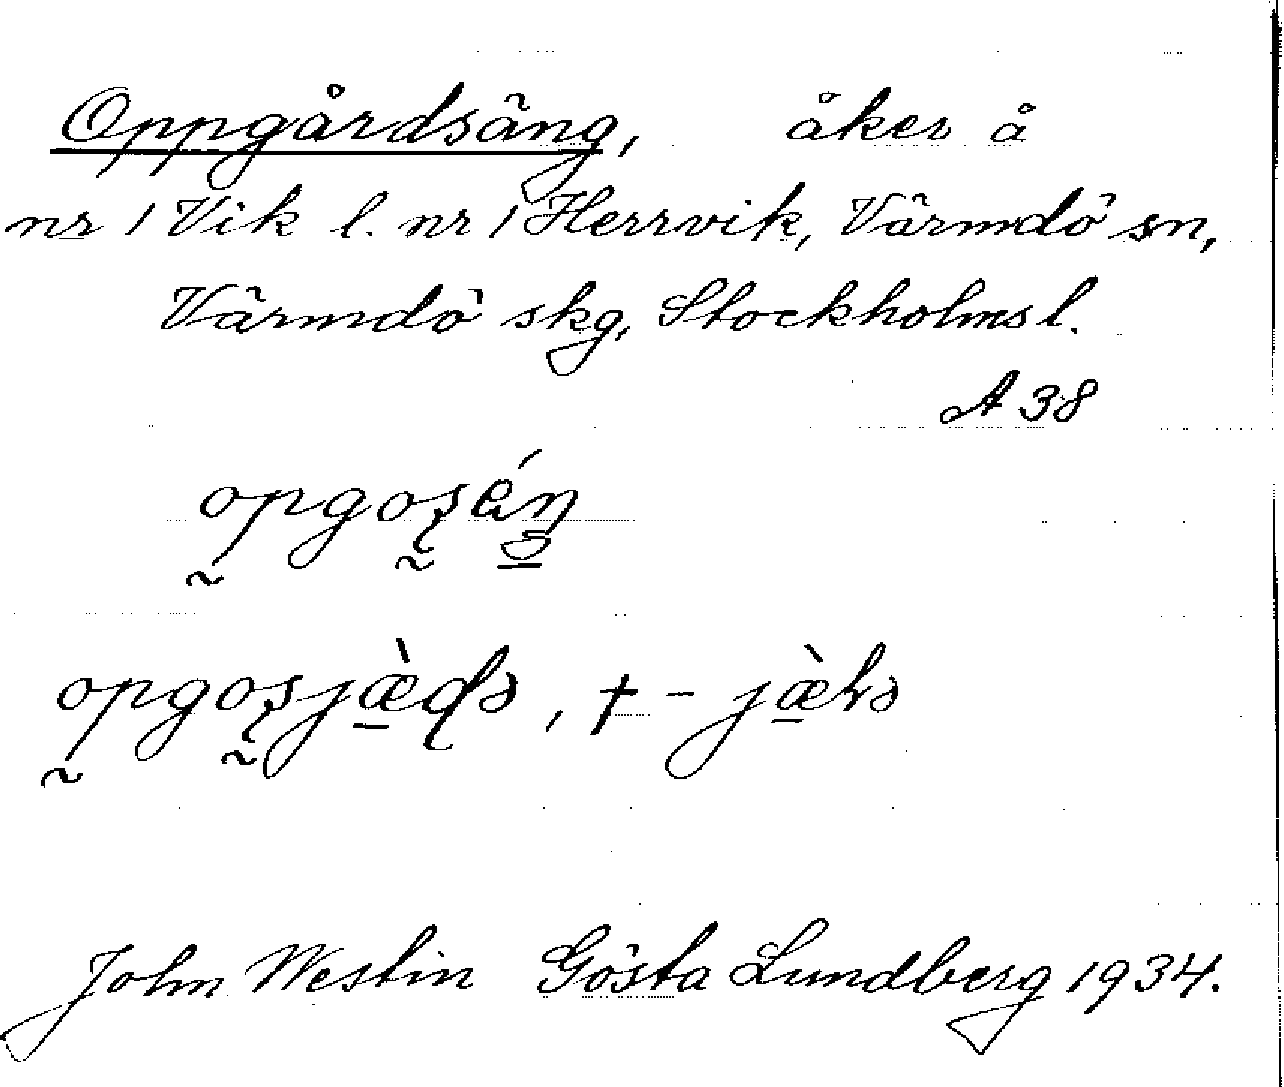 Oppgårdsäng, åker å
nr 1 Vik l. nr 1 Herrvik, Värmdö sn,
Värmdö skg, Stockholms l.
A 38
John Westin Gösta Lundberg 1934.